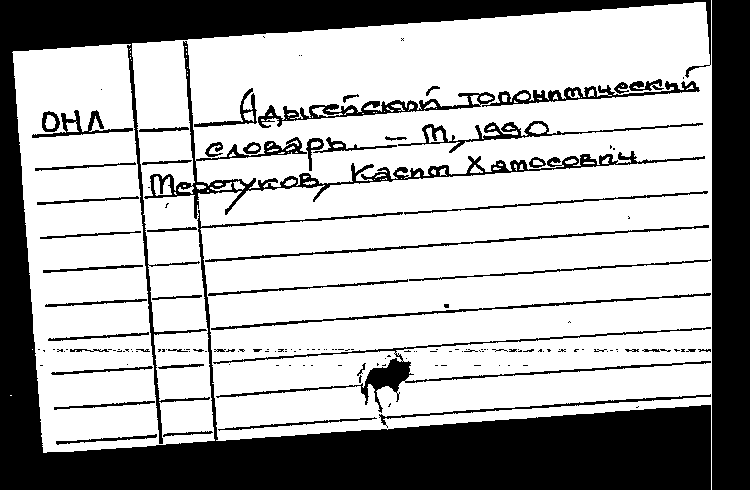 ОНЛ Адыгейский топонимический
словарь. – М., 1990.
Меретуков, Касим Хамосович.